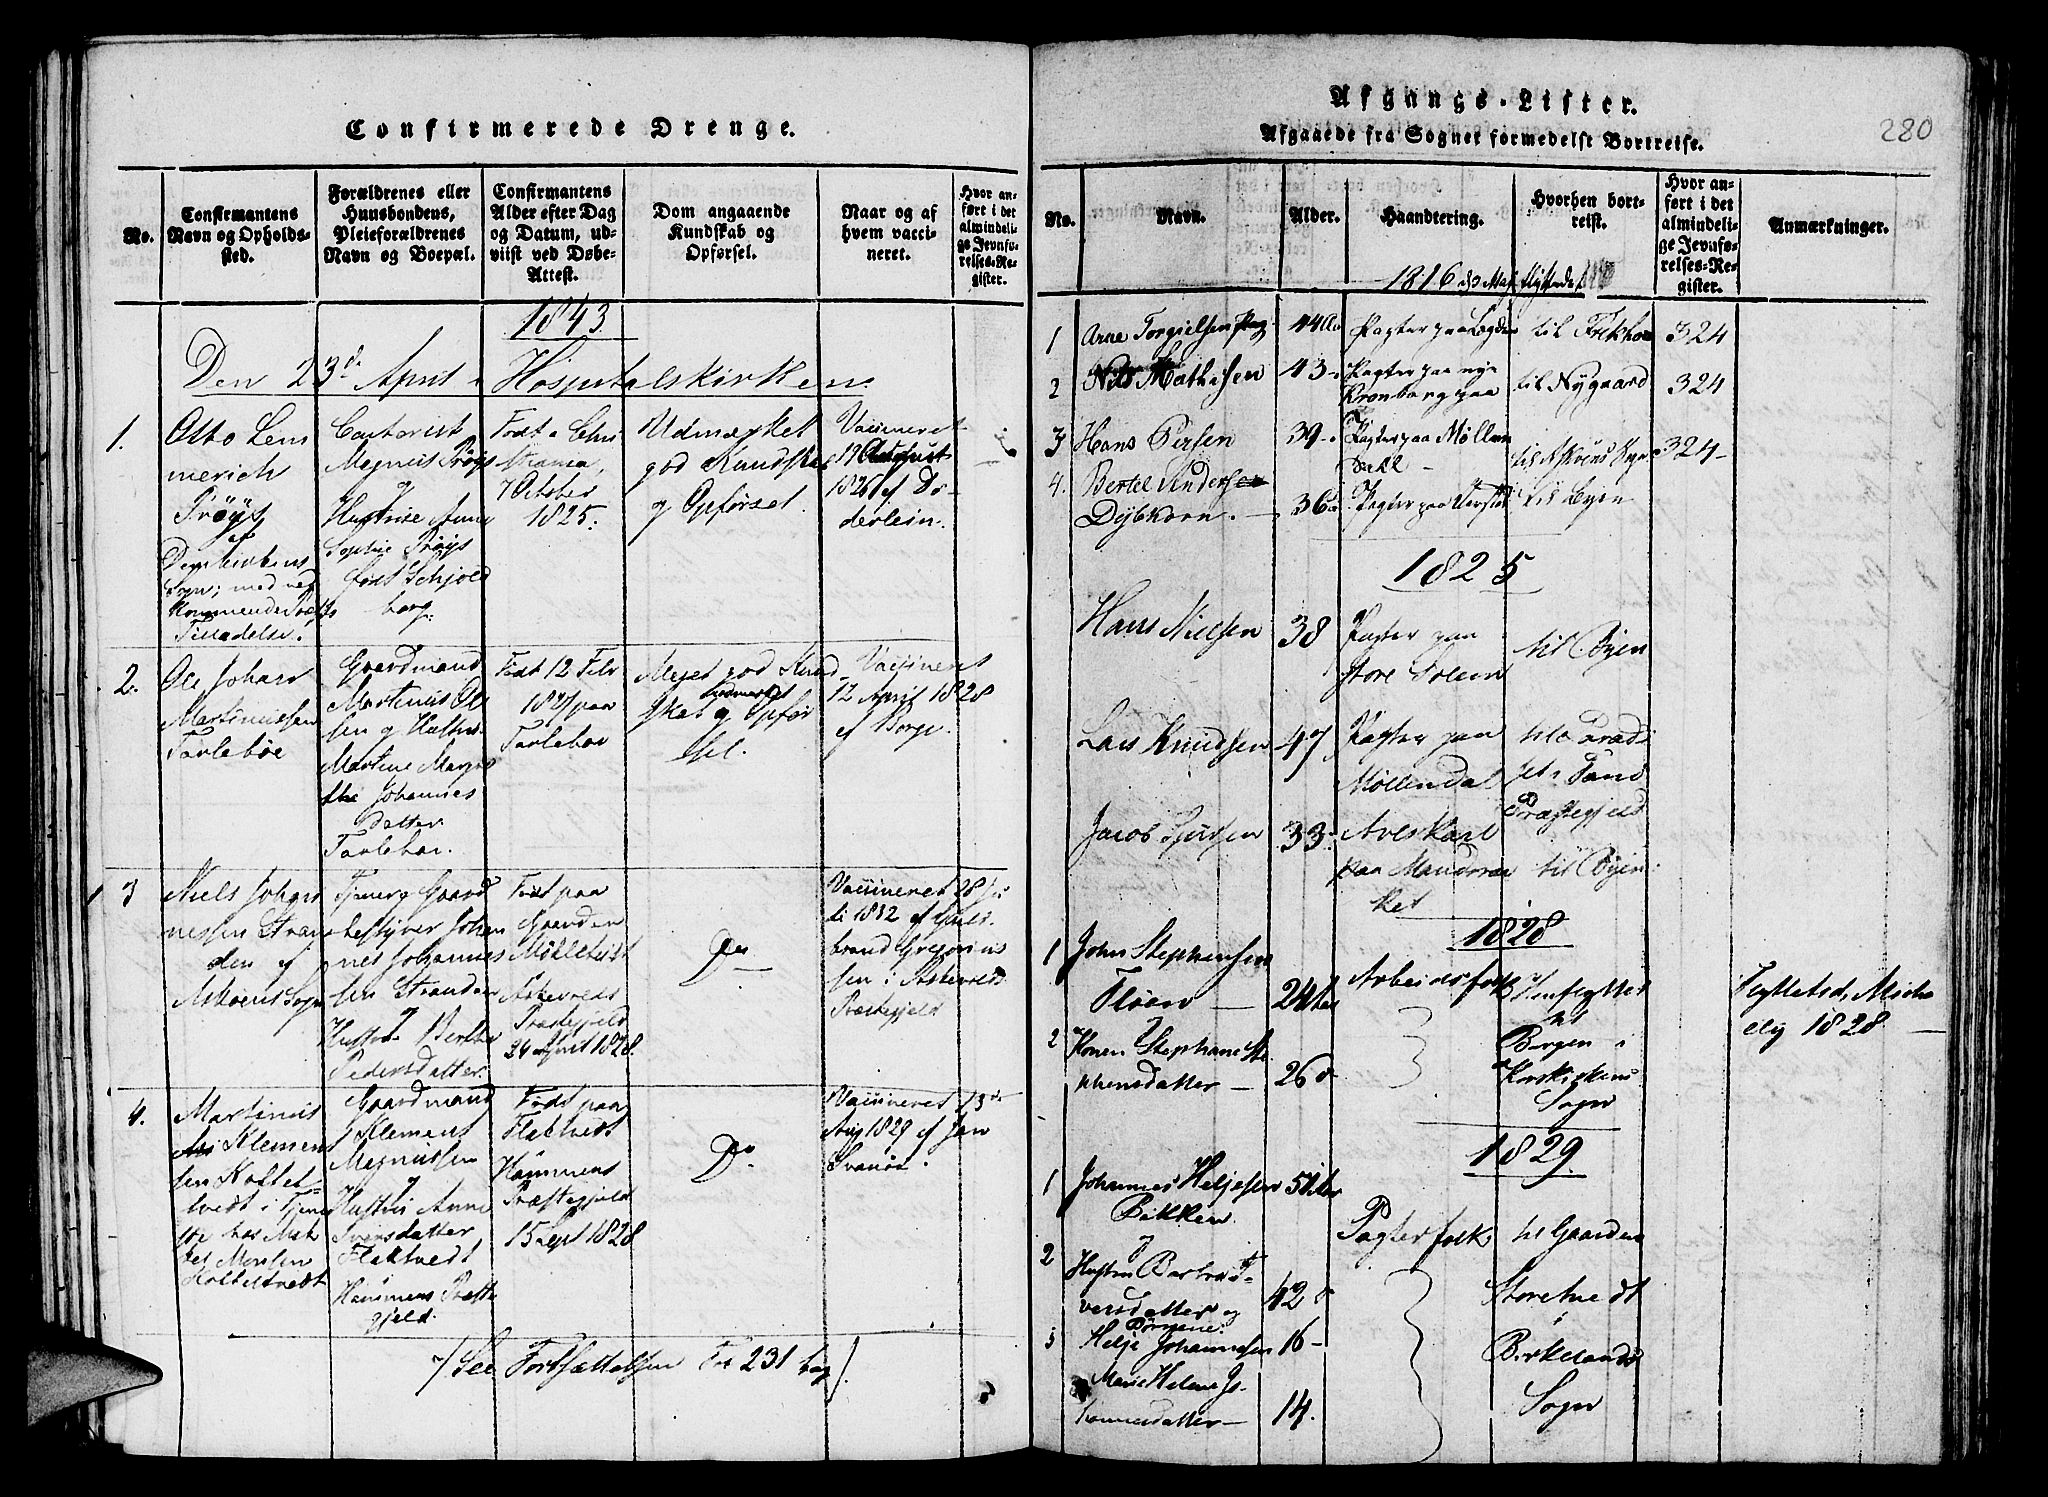 Confirmerede Drenge.
No.
Confirmantens
Navn og Opholds-
sted.
Forældrenes eller
Huusbondens,
Pleieforældrenes
Navn og Boepæl.
Confirmantens
Alder efter Dag
og Datum, ud-
viist ved Døbe-
Attest.
Dom angaaende
Kundskab og
Opførsel.
Naar og af
hvem vacci-
neret.
Hvor an-
ført i det
almindeli-
ge Jevnfø-
relses-Re-
gister.
1843
Den 23de April i Hospitalskirken
1.
Otto Lem
merich
Prøys
af
Domkirkens
Sogn; med ved
kommende Præsts
Tilladelse.
Magnus Prøys
og
Hustrue Anne
Sophie Prøys
født Schjold
borg.
Født i Chri
stiania,
7 October
1825.
Udmærket
god Kundskab
og Opførsel.
Vaccineret
19 August
1826 af Dø-
derlein.
2.
Ole Johan
Martinussen
Tarlebøe
Gaardmand
Martinus Ol
sen og Hustru
Martine Margre
the Johannes
datter
Tarleboe.
Født 12 Febr
1827 paa
Tarleboe
Meget god Kund
skab og udmærket Opfør
sel.
Vaccineret
12 April 1828
af Borge.
3
Niels Johan
nessen Stran
den af
Askøens Sogn
Gaard
bestyver Johan
nes Johannes
sen Stranden
og
Hustru Berthe
Pedersdatter.
Født paa
Gaarden
Askevolds
Præstegjeld
24 April 1828.
Do
Vaccineret 28 Ju
li 1832 af Guld
brand Gregorius
sen i Askevolds
Præstegjeld
4.
Martinus
Klemen
sen
Gaardmand
Klement
Magnussen
og
Hustru Anne
Iversdatter
Flaktvedt
Præste
gjeld.
Født paa
Flaktvedt
Præstegjeld
15 Sept 1828
Do.
Vaccineret 13de
Aug 1829 af Jan
Svanøe.
/: See Fortsættelsen Fol 231 bag :/
Afgangs-Lister.
Afgaaede fra Sognet formedelst Bortreise.
280
No.
Navn.
Alder.
Haandtering.
Hvorhen bort-
reist.
Hvor an-
ført i det
almindeli-
ge Jevnfø-
relses-Re-
gister.
Anmærkninger.
1816 d 3 Maj flyttede
1
Arne Torgielsen
44 Aar
Pagter paa
til
324
2
Nils Mathisen
43 -
Pagter paa nye
Kronborg paa
til Nygaard
324
3
Hans Persen
39 -
Pagter paa Møllen
Dall -
til Askøens Sogn
324 -
4.
Bertel Andersen
Dybkorn. -
36
Pagter paa
til Byen
1825
Hans Nielsen
38
Pagter paa
store Solem
til Byen
Lars Knudsen
47
Pagter paa
Møllendal
til Parad
is i Fane
Præstegjeld
Jacob
33
Avlskarl
paa
til Byen
1828
1
John Stephensen
Fløen -
24
Arbeidsfolk
Henflyttet
til
Bergen i
Korskirkens
Sogn
Flyttet d. Micha
elij 1828 -
2
og
Konen Stephane Ste
phensdatter -
26 -
1829
1
Johannes Heljesen
Bakken
51 Aar
Pagterfolk
til Gaarden
Storetvedt
i
Birkelands
Sogn
2
og
Hustru
versdatter og
42 -
Børnene.
3
Helje Johannesen
16 -
Marie Helene Jo
hannesdatter -
14.